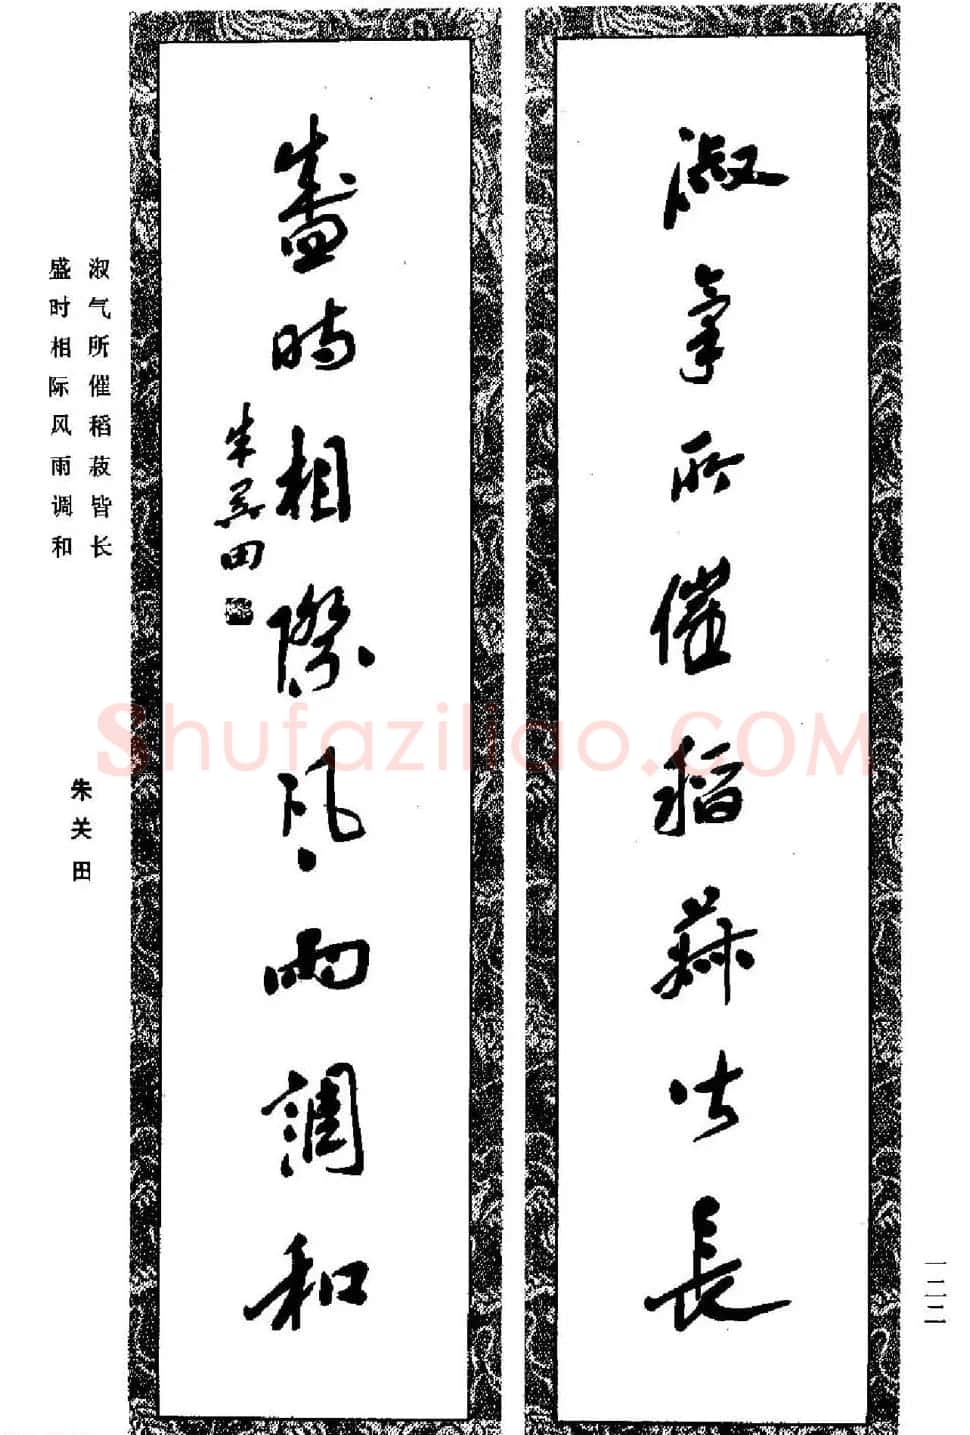 淑氣所催稻菽皆長
盛時相際風雨調和
朱关田
淑气所催稻菽皆长
盛时相际风雨调和
朱关田
一二二
Shufaziliao.COM